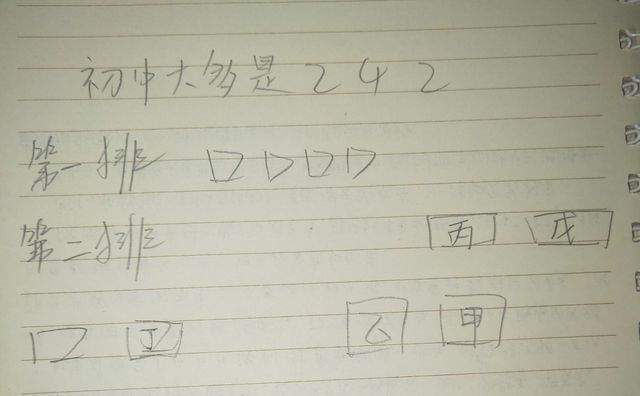 初中大多是 2 4 2
第一排
第二排 丙 戊
丁 乙 甲